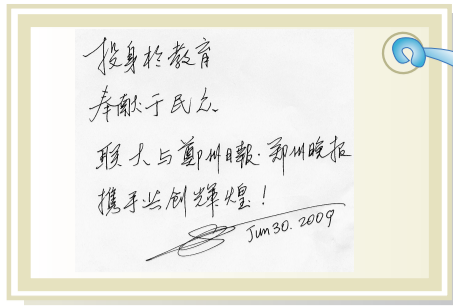 投身於教育
奉献于民众
联大与鄭州日報·郑州晚报
携手共创辉煌！
Jun 30. 2009